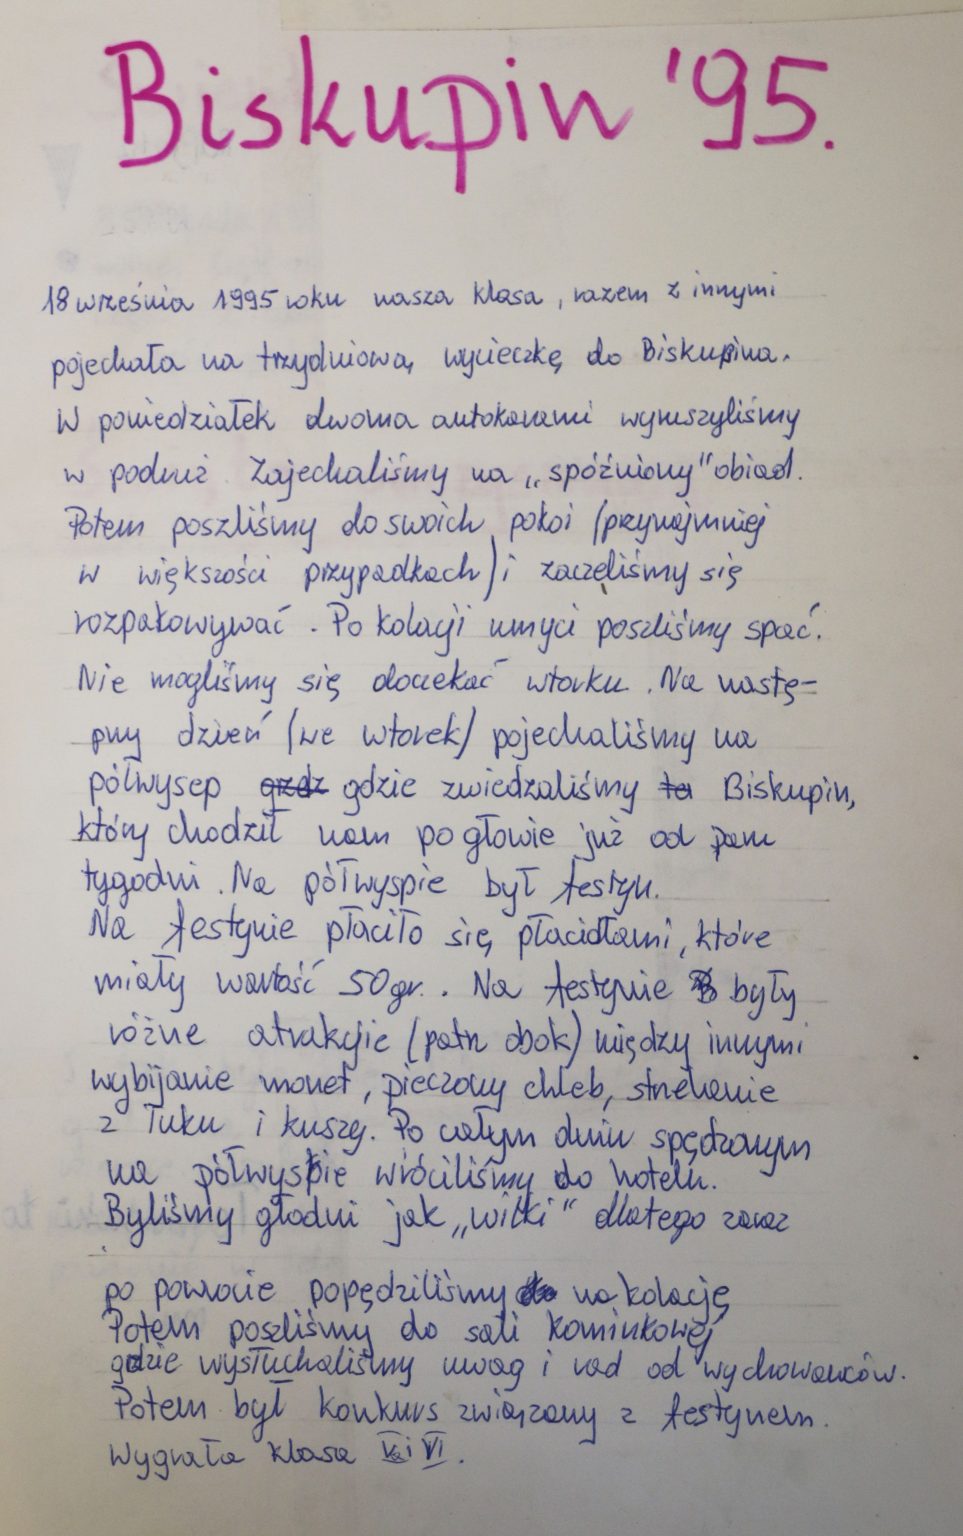 Biskupin '95.
18 września 1995 roku nasza klasa, razem z innymi
pojechała na trzydniową wycieczkę do Biskupina.
W poniedziałek dwoma autokarami wyruszyliśmy
w podruż Zajechaliśmy na „spóźniony" obiad.
Potem poszliśmy do swoich pokoi (przynajmniej
w większości przypadkach) i zaczęliśmy się
rozpakowywać. Po kolacji umyci poszliśmy spać.
Nie mogliśmy się doczekać wtorku. Na nastę-
pny dzień (we wtorek) pojechaliśmy na
półwysep gdzie zwiedzaliśmy Biskupin,
który chodził nam po głowie już od paru
tygodni. Na półwyspie był festyn.
Na festynie płaciło się płacidłami, które
miały wartość 50gr.. Na festynie były
różne atrakcjie (patrz obok) między innymi
wybijanie monet, pieczony chleb, strzelanie
z łuku i kuszy. Po całym dniu spędzonym
na półwyspie wróciliśmy do hotelu.
Byliśmy głodni jak „wilki" dlatego zaraz
po powrocie popędziliśmy na kolację
Potem poszliśmy do sali kominkowej
gdzie wysłuchaliśmy uwag i rad od wychowawców.
Potem był konkurs związany z festynem.
Wygrała klasa Va i VI.